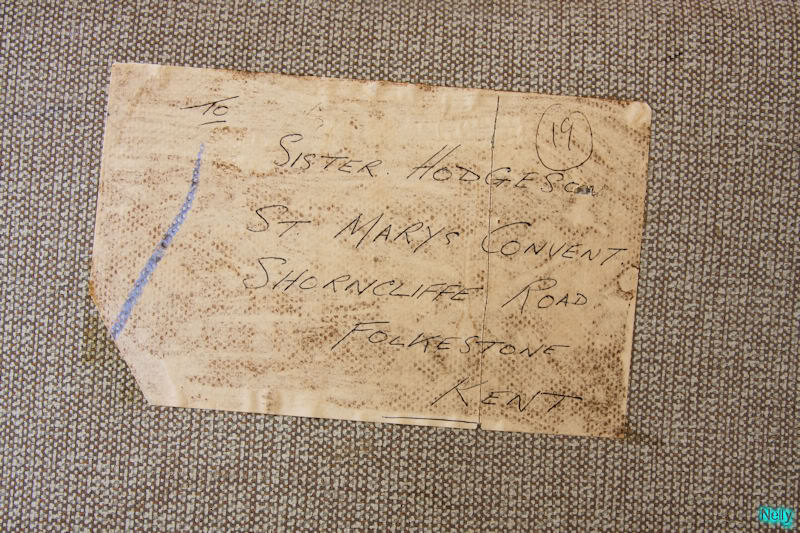 To
19
SISTER. HODGESON
ST. MARYS CONVENT.
SHORNCLIFFE ROAD
FOLKESTONE
KENT
Nely